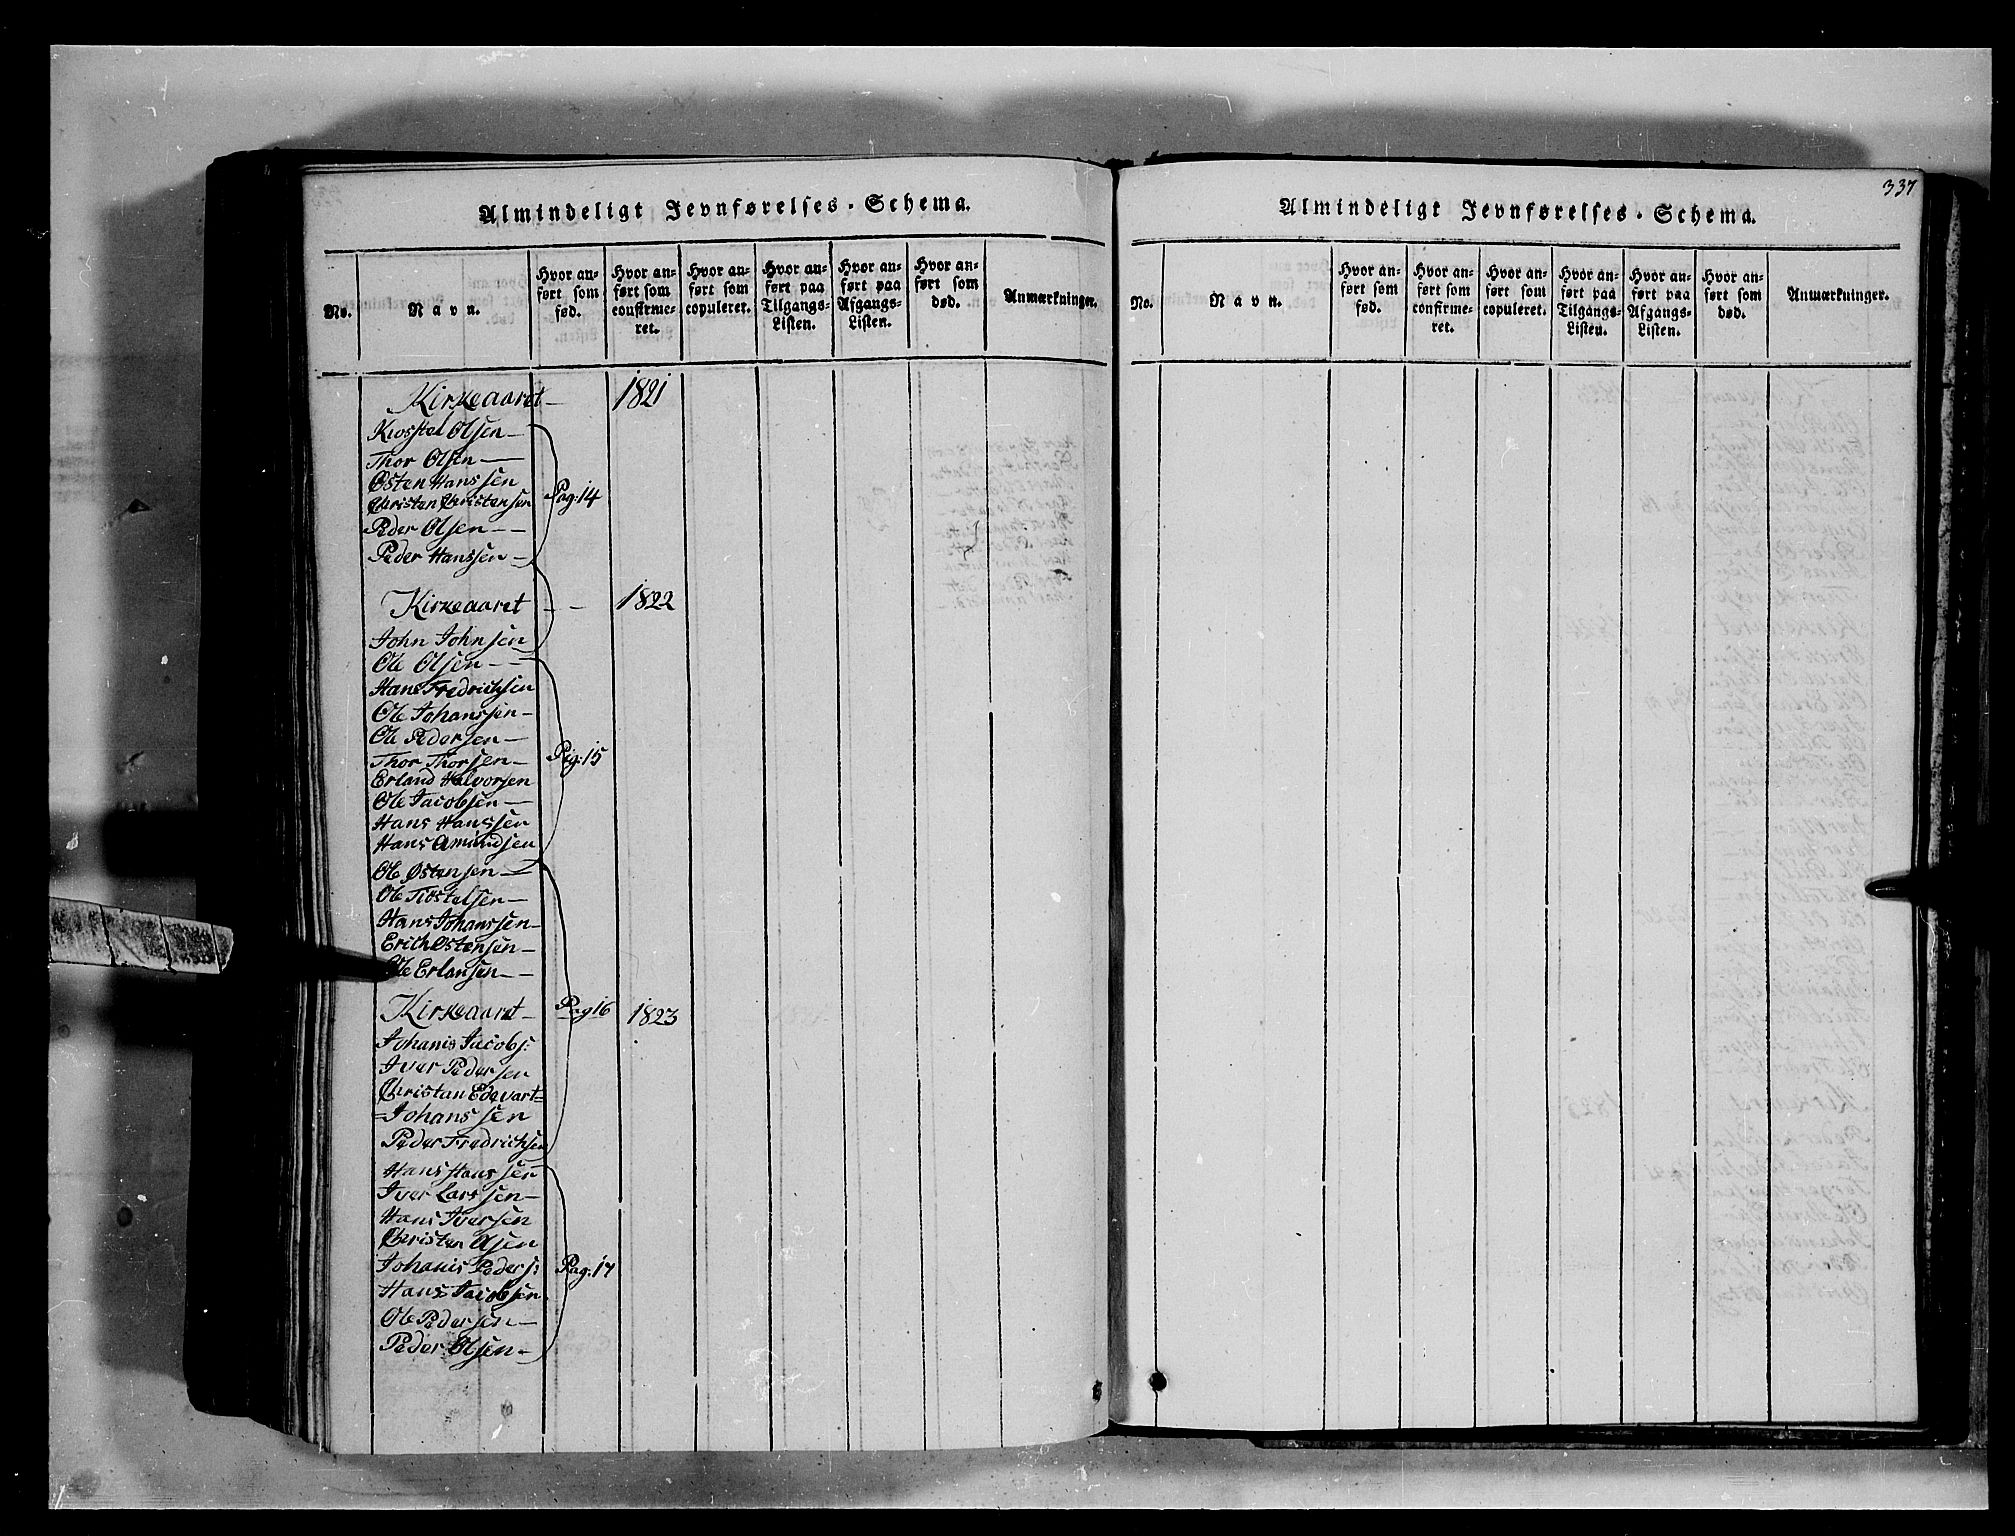 Almindeligt Jevnførelses-Schema.
No.
Navn.
Hvor anført som fød.
Hvor anført som confirmeret.
Hvor anført som copuleret.
Hvor anført paa Tilgangs-Listen.
Hvor anført paa Afgangs-Listen.
Hvor anført som død.
Anmærkninger.
Kirkeaaret — 1821
Olsen —
Thor Olsen —
Østen Hanssen
Christen Christensen
Pag: 14
Peder Olsen — —
Peder Hanssen —
Kirkeaaret — — 1822
John Johnsen
Ole Olsen — —
Hans Fredrichsen
Ole Johanssen —
Ole Pedersen —
Thor Thorsen —
Pag: 15
Erland Halvorsen
Ole Jacobsen —
Hans Hanssen
Hans Amundsen
Ole Østensen —
Ole Tostelsen —
Hans Johanssen —
Erich Østensen —
Ole Erlansen — —
Kirkeaaret — Pag 16 1823
Johanis Jacobs:
Iver Pedersen
Christan Edevart=
=Johanssen
Peder Fredrichsen
Hans Hanssen
Iver Larssen —
Hans Iversen
Christen Olsen
Johanis Peders: Pag: 17
Hans Jacobsen
Ole Pedersen —
Peder Olsen —
337
Almindeligt Jevnførelses-Schema.
No.
Navn.
Hvor anført som fød.
Hvor anført som confirmeret.
Hvor anført som copuleret.
Hvor anført paa Tilgangs-Listen.
Hvor anført paa Afgangs-Listen.
Hvor anført som død.
Anmærkninger.